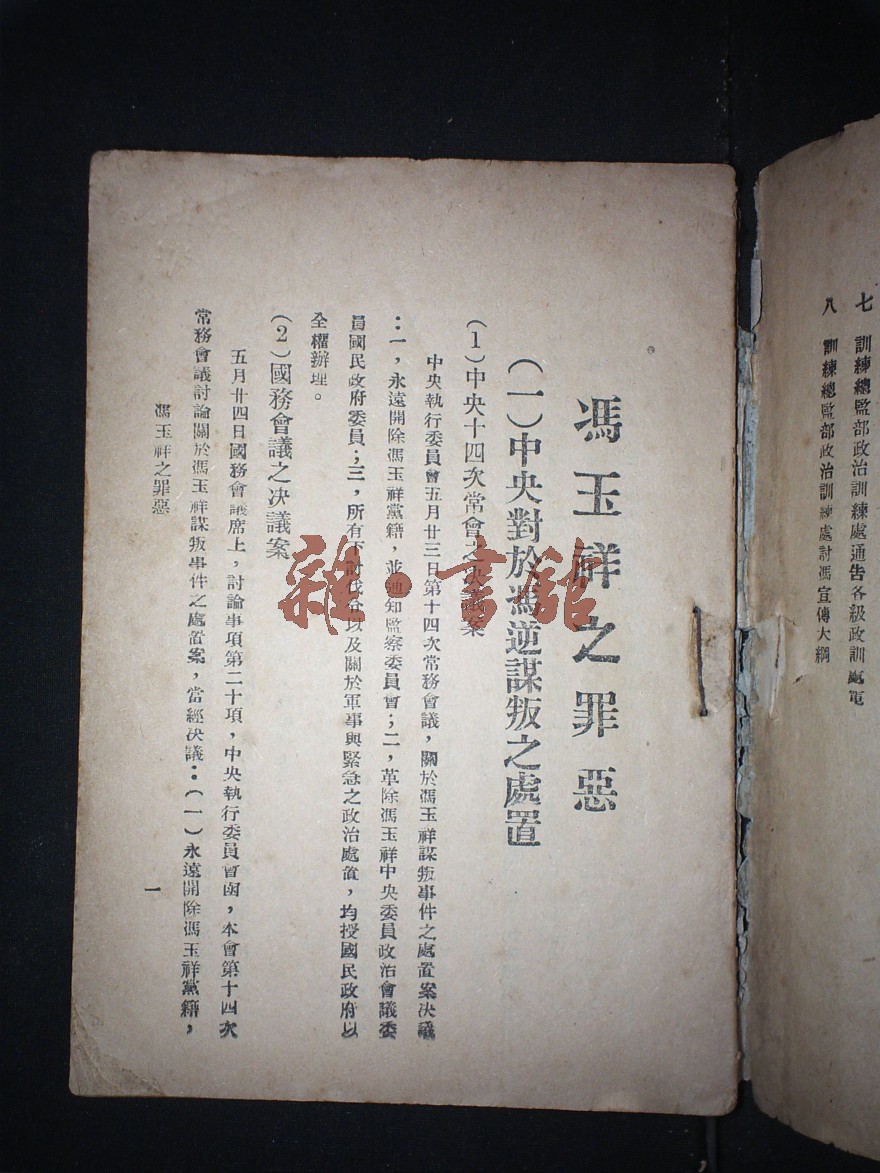 七　訓練總監部政治訓練處通告各級政訓處電
八　訓練總監部政治訓練處討馮宣傳大綱
馮玉祥之罪惡
(一)中央對於馮逆謀叛之處置
(1)中央十四次常會之決議案
中央執行委員會五月廿三日第十四次常務會議，關於馮玉祥謀叛事件之處置案決議
：一，永遠開除馮玉祥黨籍，並通知監察委員會；二，革除馮玉祥中央委員政治會議委
員國民政府委員；三，所有下討伐令以及關於軍事與緊急之政治處置，均授國民政府以
全權辦理。
(2)國務會議之決議案
五月廿四日國務會議席上，討論事項第二十項，中央執行委員會函，本會第十四次
常務會議討論關於馮玉祥謀叛事件之處置案，當經決議：(一)永遠開除馮玉祥黨籍，
馮玉祥之罪惡
一
雜·書館